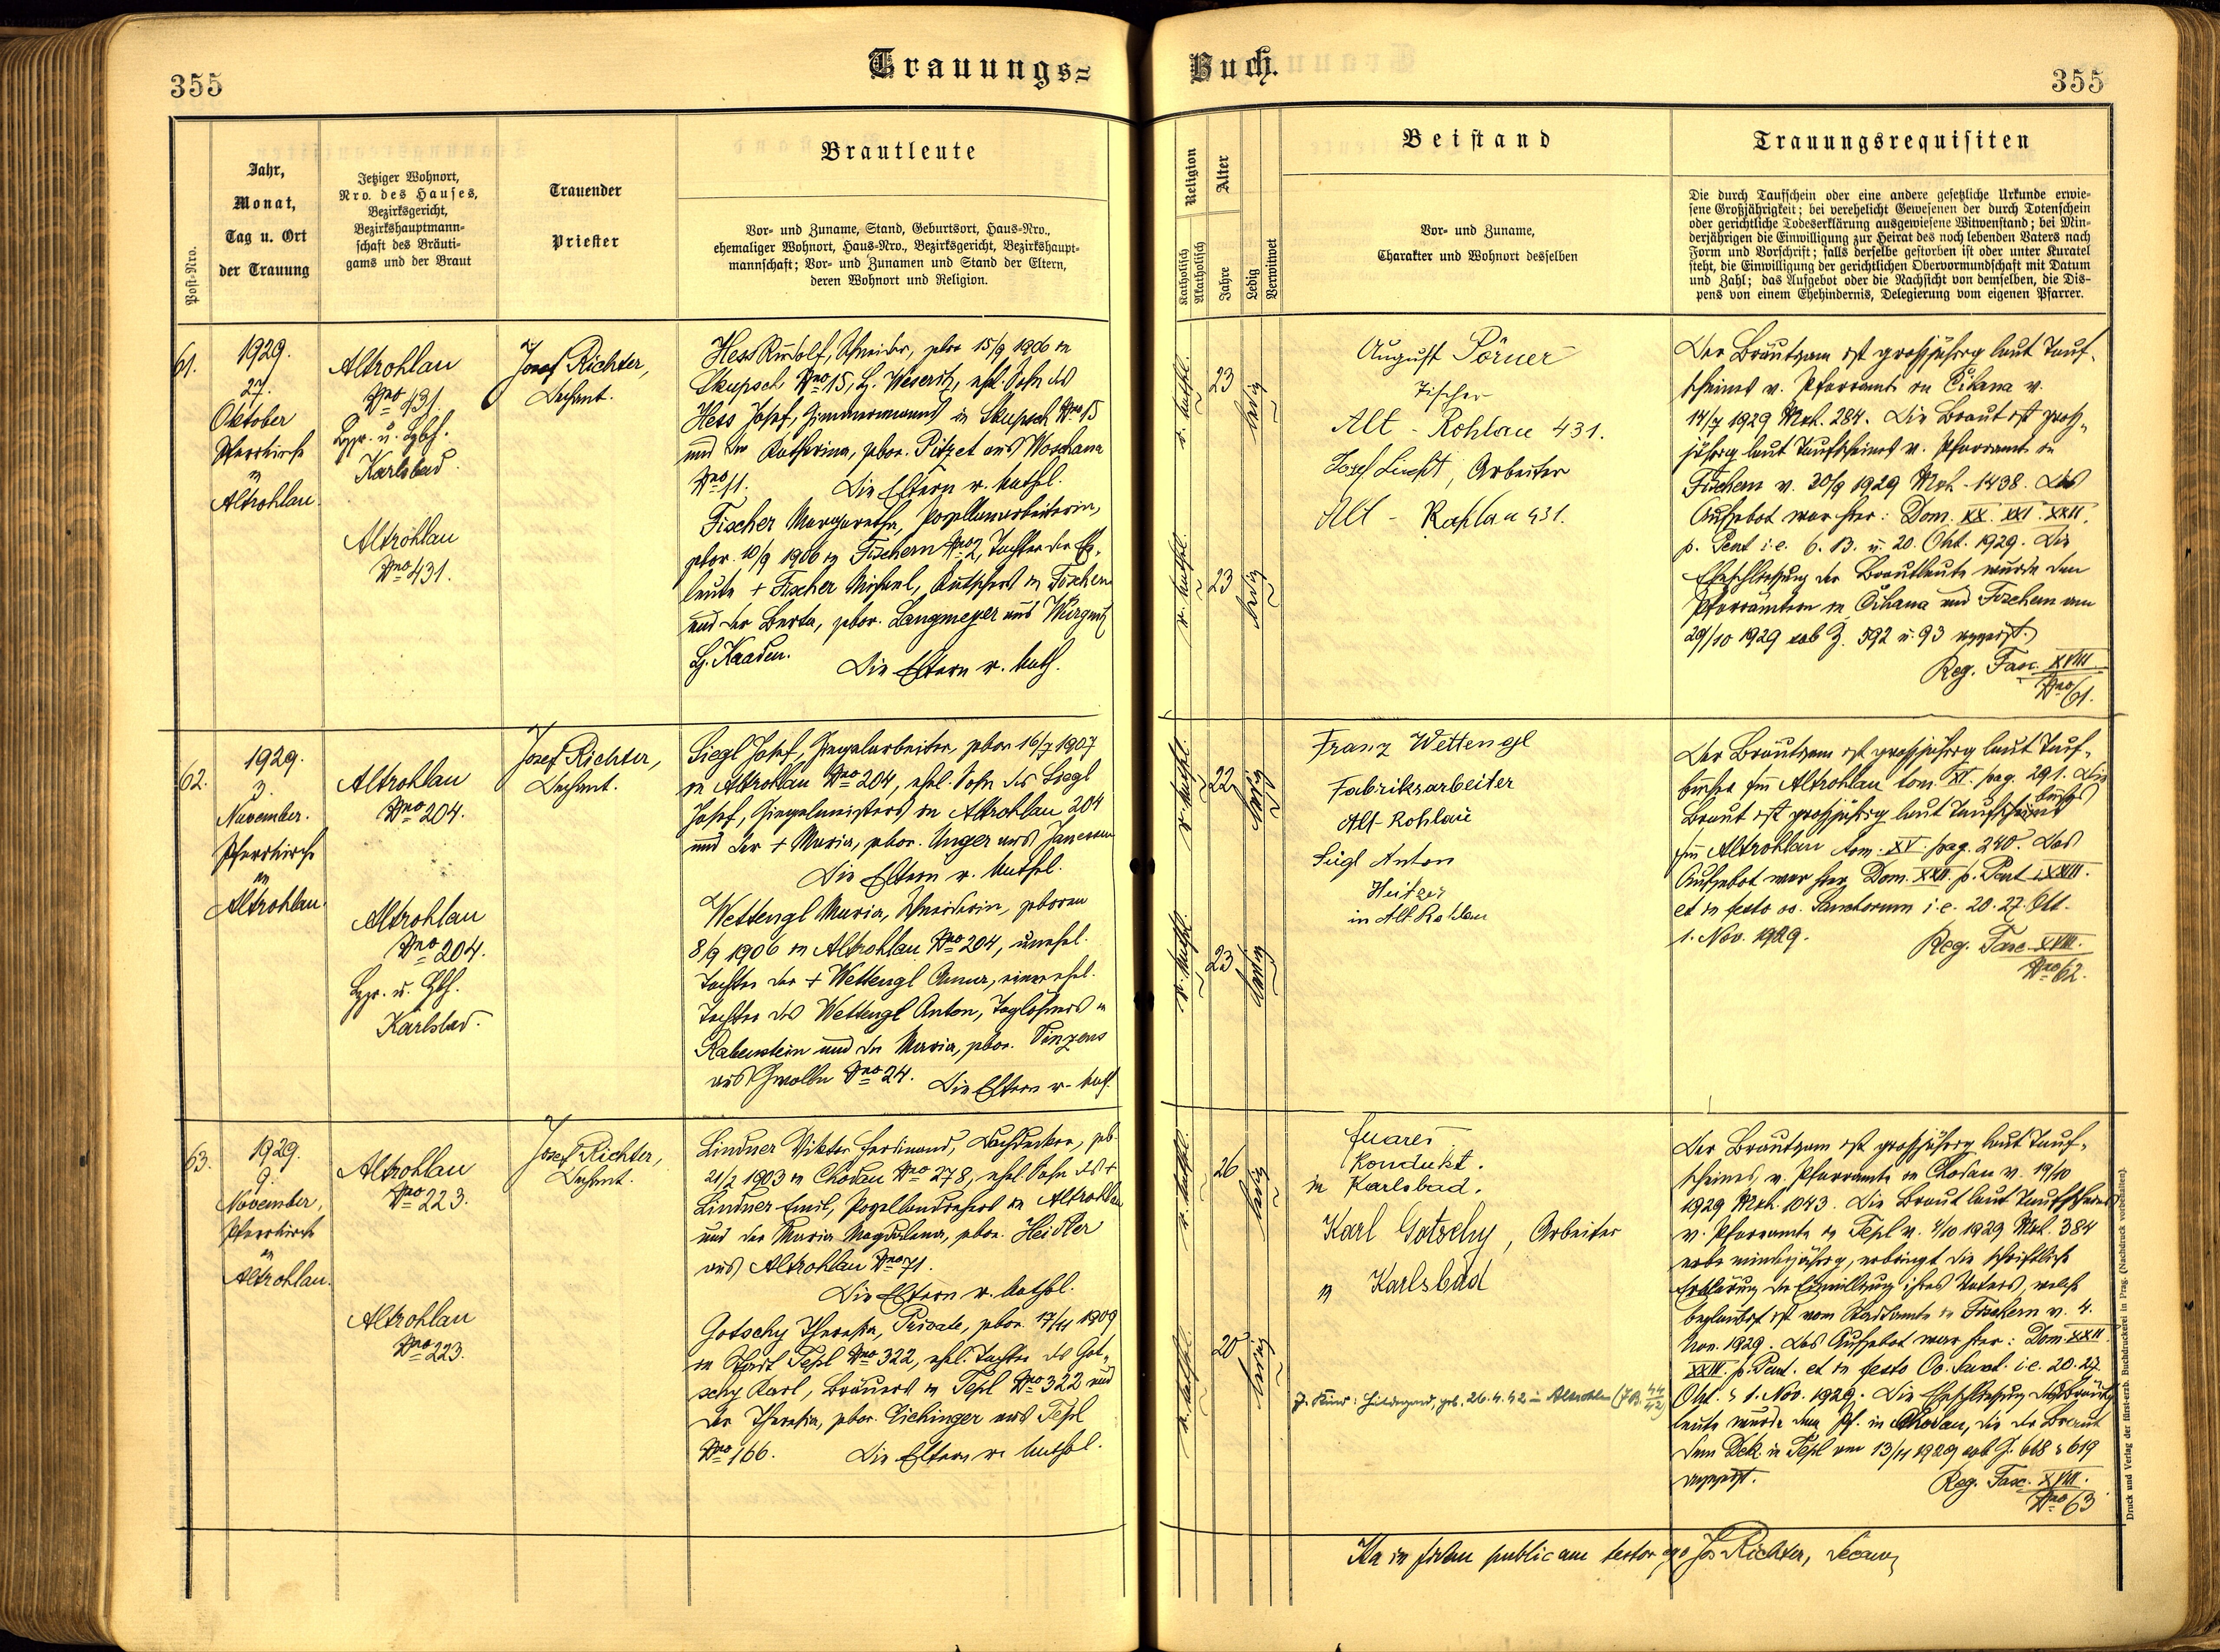 355
Trauungs=
Buch.
355
Post-Nro.
Jahr,
Monat,
Tag u. Ort
der Trauung
Jetziger Wohnort,
Nro. des Hauses,
Bezirksgericht,
Bezirkshauptmann-
schaft des Bräuti-
gams und der Braut
Trauender
Priester
Brautleute
Vor- und Zuname, Stand, Geburtsort, Haus-Nro.,
ehemaliger Wohnort, Haus-Nro., Bezirksgericht, Bezirkshaupt-
mannschaft; Vor- und Zunamen und Stand der Eltern,
deren Wohnort und Religion.
Religion
Katholisch
Akatholisch
Alter
Jahre
Ledig
Verwitwet
Beistand
Vor- und Zuname,
Charakter und Wohnort desselben
Trauungsrequisiten
Die durch Taufschein oder eine andere gesetzliche Urkunde erwie-
sene Großjährigkeit; bei verehelicht Gewesenen der durch Totenschein
oder gerichtliche Todeserklärung ausgewiesene Witwenstand; bei Min-
derjährigen die Einwilligung zur Heirat des noch lebenden Vaters nach
Form und Vorschrift; falls derselbe gestorben ist oder unter Kuratel
steht, die Einwilligung der gerichtlichen Obervormundschaft mit Datum
und Zahl; das Aufgebot oder die Nachsicht von demselben, die Dis-
pens von einem Ehehindernis, Delegierung vom eigenen Pfarrer.
61.
1929.
27.
Oktober
Pfarrkirche
in
Altrohlau.
Altrohlau
Nro 431.
Karlsbad.
Altrohlau
Nro 431.
Josef Richter,
Dechant.
Hess Rudolf, Schneider, gebor 15/9 1906 in
Skupsch Nro 15, B. Weseritz, ehel. Sohn des
Hess Josef, Zimmermanns in Skupsch Nro 15
und der Katharina, gebor. Pitzet aus Woschana
Nro 11. Die Eltern r. kathol.
Fischer Margaretha, Porzellanarbeiterin,
gebor. 10/9 1906 in Fischern Nro 2, Tochter der Ehe-
leute + Fischer Michael, Kutschers in Fischern
und der Berta, gebor. Langmeyer aus
B. Kaaden. Die Eltern r. kath.
r. kathol. 23 ledig
r. kathol. 23 ledig
August Pörner
Tischer
Alt - Rohlau 431.
Josef, Arbeiter
Alt - Rohlau 431.
Der Bräutigam ist großjährig laut Tauf-
scheines v. Pfarramte in Čihana v.
14/7 1929 Mek. 284. Die Braut ist groß-
jährig laut Taufscheines v. Pfarramte in
Fischern v. 30/9 1929 Mek. 1438. Das
Aufgebot war hier: Dom. XX. XXI. XXII.
p. Pent i. e. 6. 13. u. 20. Okt. 1929. Die
Eheschließung der Brautleute wurde den
Pfarrämtern in Čihana und Fischern am
29/10 1929 sub Z. 592 u. 93 angezeigt.
Reg. Fasc. XVIII.
Nro 61.
62.
1929.
3.
November.
Pfarrkirche
in
Altrohlau.
Altrohlau
Nro 204.
Altrohlau
Nro 204.
Karlsbad.
Josef Richter,
Dechant.
Siegl Josef, Ziegelarbeiter, gebor 16/7 1907
in Altrohlau Nro 204, ehel. Sohn des Siegl
Josef, Ziegelmeisters in Altrohlau 204
und der + Maria, gebor. Unger aus Janessen
Die Eltern r. kathol.
Wettengl Maria, Schneiderin, geboren
8/9 1906 in Altrohlau Nro 204, unehel.
Tochter der + Wettengl Anna, einer ehel.
Tochter des Wettengl Anton, Taglöhners in
Rabenstein und der Maria, gebor. Vinzens
aus Nro 24. Die Eltern r. kath.
r. kathol. 22 ledig
r. kathol. 23 ledig
Franz Wettengl
Fabriksarbeiter
Alt-Rohlau
Siegl Anton
Heitzer
in Alt-Rohlau
Der Bräutigam ist großjährig laut Tauf-
buches hier Altrohlau tom. XI. pag. 291. Die
Braut ist großjährig laut Taufbuches
hier Altrohlau tom. XV. pag. 240. Das
Aufgebot war hier Dom. XXII. p. Pent XXIII.
et in festo oo. Sanctorum i. e. 20. 27. Okt.
1. Nov. 1929.
Reg. Fasc. XVIII.
Nro 62.
63.
1929.
9.
November,
Pfarrkirche
in
Altrohlau.
Altrohlau
Nro 223.
Altrohlau
Nro 223.
Josef Richter,
Dechant.
Lindner Viktor Ferdinand, Dachdecker, geb.
21/2 1903 in Chodau Nro 278, ehel. Sohn des +
Lindner Emil, Porzellandrehers in Altrohlau
und der Maria Magdalena, gebor. Heidler
aus Altrohlau Nro 71.
Die Eltern r. kathol.
Gotschy Theresia, Private, gebor. 17/11 1909
in Stadt Tepl Nro 322, ehel. Tochter des Got-
schy Karl, Bräuers in Tepl Nro 322 und
der Theresia, gebor. Eichinger aus Tepl
Nro 166. Die Eltern r. kathol.
r. kathol. 26 ledig
r. kathol. 20 ledig
Kondukt.
in Karlsbad.
Karl Gotschy, Arbeiter
in Karlsbad
Hildegard, geb. 26.4.42 in Altrohlau
Der Bräutigam ist großjährig laut Tauf-
scheines, v. Pfarramte in Chodau v. 19/10
1929 Mek. 1043. Die Braut laut Taufscheines
v. Pfarramte in Tepl v. 4/10 1929 Mek. 384
minderjährig, erbringt die schriftliche
Erklärung der Einwilligung ihres Vaters, welche
beglaubigt ist vom Stadtamte in Fischern v. 4.
Nov. 1929. Das Aufgebot war hier: Dom. XXII.
XXIII. p. Pent. et in festo Oo. Sanct. i. e. 20. 27.
Okt. & 1. Nov. 1929. Die Eheschließung der Braut-
leute wurde dem Pf. in Chodau, die der Braut
dem Dek. in Tepl am 13/11 1929 sub Z. 618 & 619
angezeigt.
Reg. Fasc. XVIII.
Nro 63
Ita in fidem publicam testor ego Jos Richter, Decan
Druck und Verlag der fürst-erzb. Buchdruckerei in Prag. (Nachdruck vorbehalten).